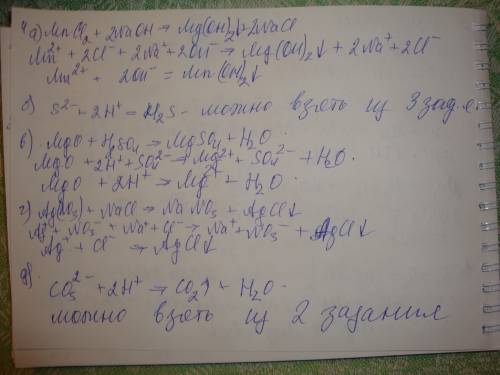 4 а) MnCl₂ + 2NaOH → Mg(OH)₂↓+2NaCl
Mn²⁺ + 2Cl⁻ + 2Na⁺ + 2OH⁻ → Mg(OH)₂↓ + 2Na⁺ + 2Cl⁻
Mn²⁺ + 2OH⁻ = Mn(OH)₂↓
б) S²⁻ + 2H⁺ = H₂S - можно взять из 3 зад.
в) MgO + H₂SO₄ → MgSO₄ + H₂O
MgO + 2H⁺ + SO₄²⁻ → Mg²⁺ + SO₄²⁻ + H₂O
MgO + 2H⁺ → Mg²⁺ + H₂O
г) AgNO₃ + NaCl → NaNO₃ + AgCl↓
Ag⁺ + NO₃⁻ + Na⁺ + Cl⁻ → Na⁺ + NO₃⁻ + AgCl↓
Ag⁺ + Cl⁻ → AgCl↓
д) CO₃²⁻ + 2H⁺ → CO₂↑ + H₂O
можно взять из 2 задания